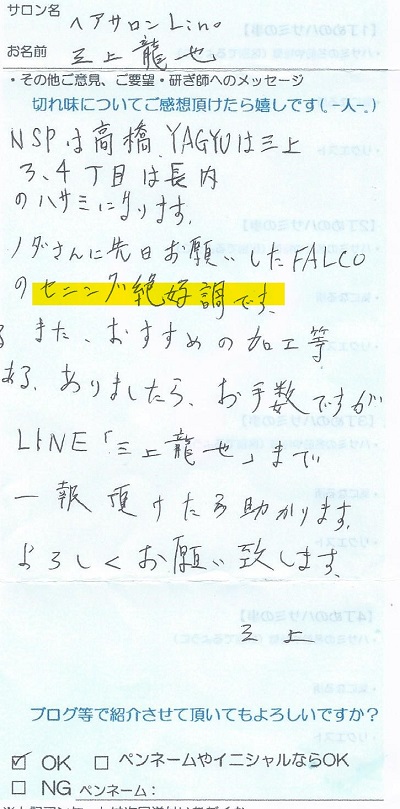 サロン名 ヘアサロンLino
お名前 三上龍也
・その他ご意見、ご要望・研ぎ師へのメッセージ
切れ味についてご感想頂けたら嬉しです(．-人-．)
NSPは高橋、YAGYUは三上
3、4丁目は長内
のハサミになります。
ノダさんに先日お願いしたFALCO
のセニング絶好調です。
また、おすすめの加工等
ありましたら、お手数ですが
LINE「三上龍也」まで
一報頂けたら助かります。
よろしくお願い致します。
三上
ブログ等で紹介させて頂いてもよろしいですか？
☑ OK □ ペンネームやイニシャルならOK
□ NG ペンネーム：